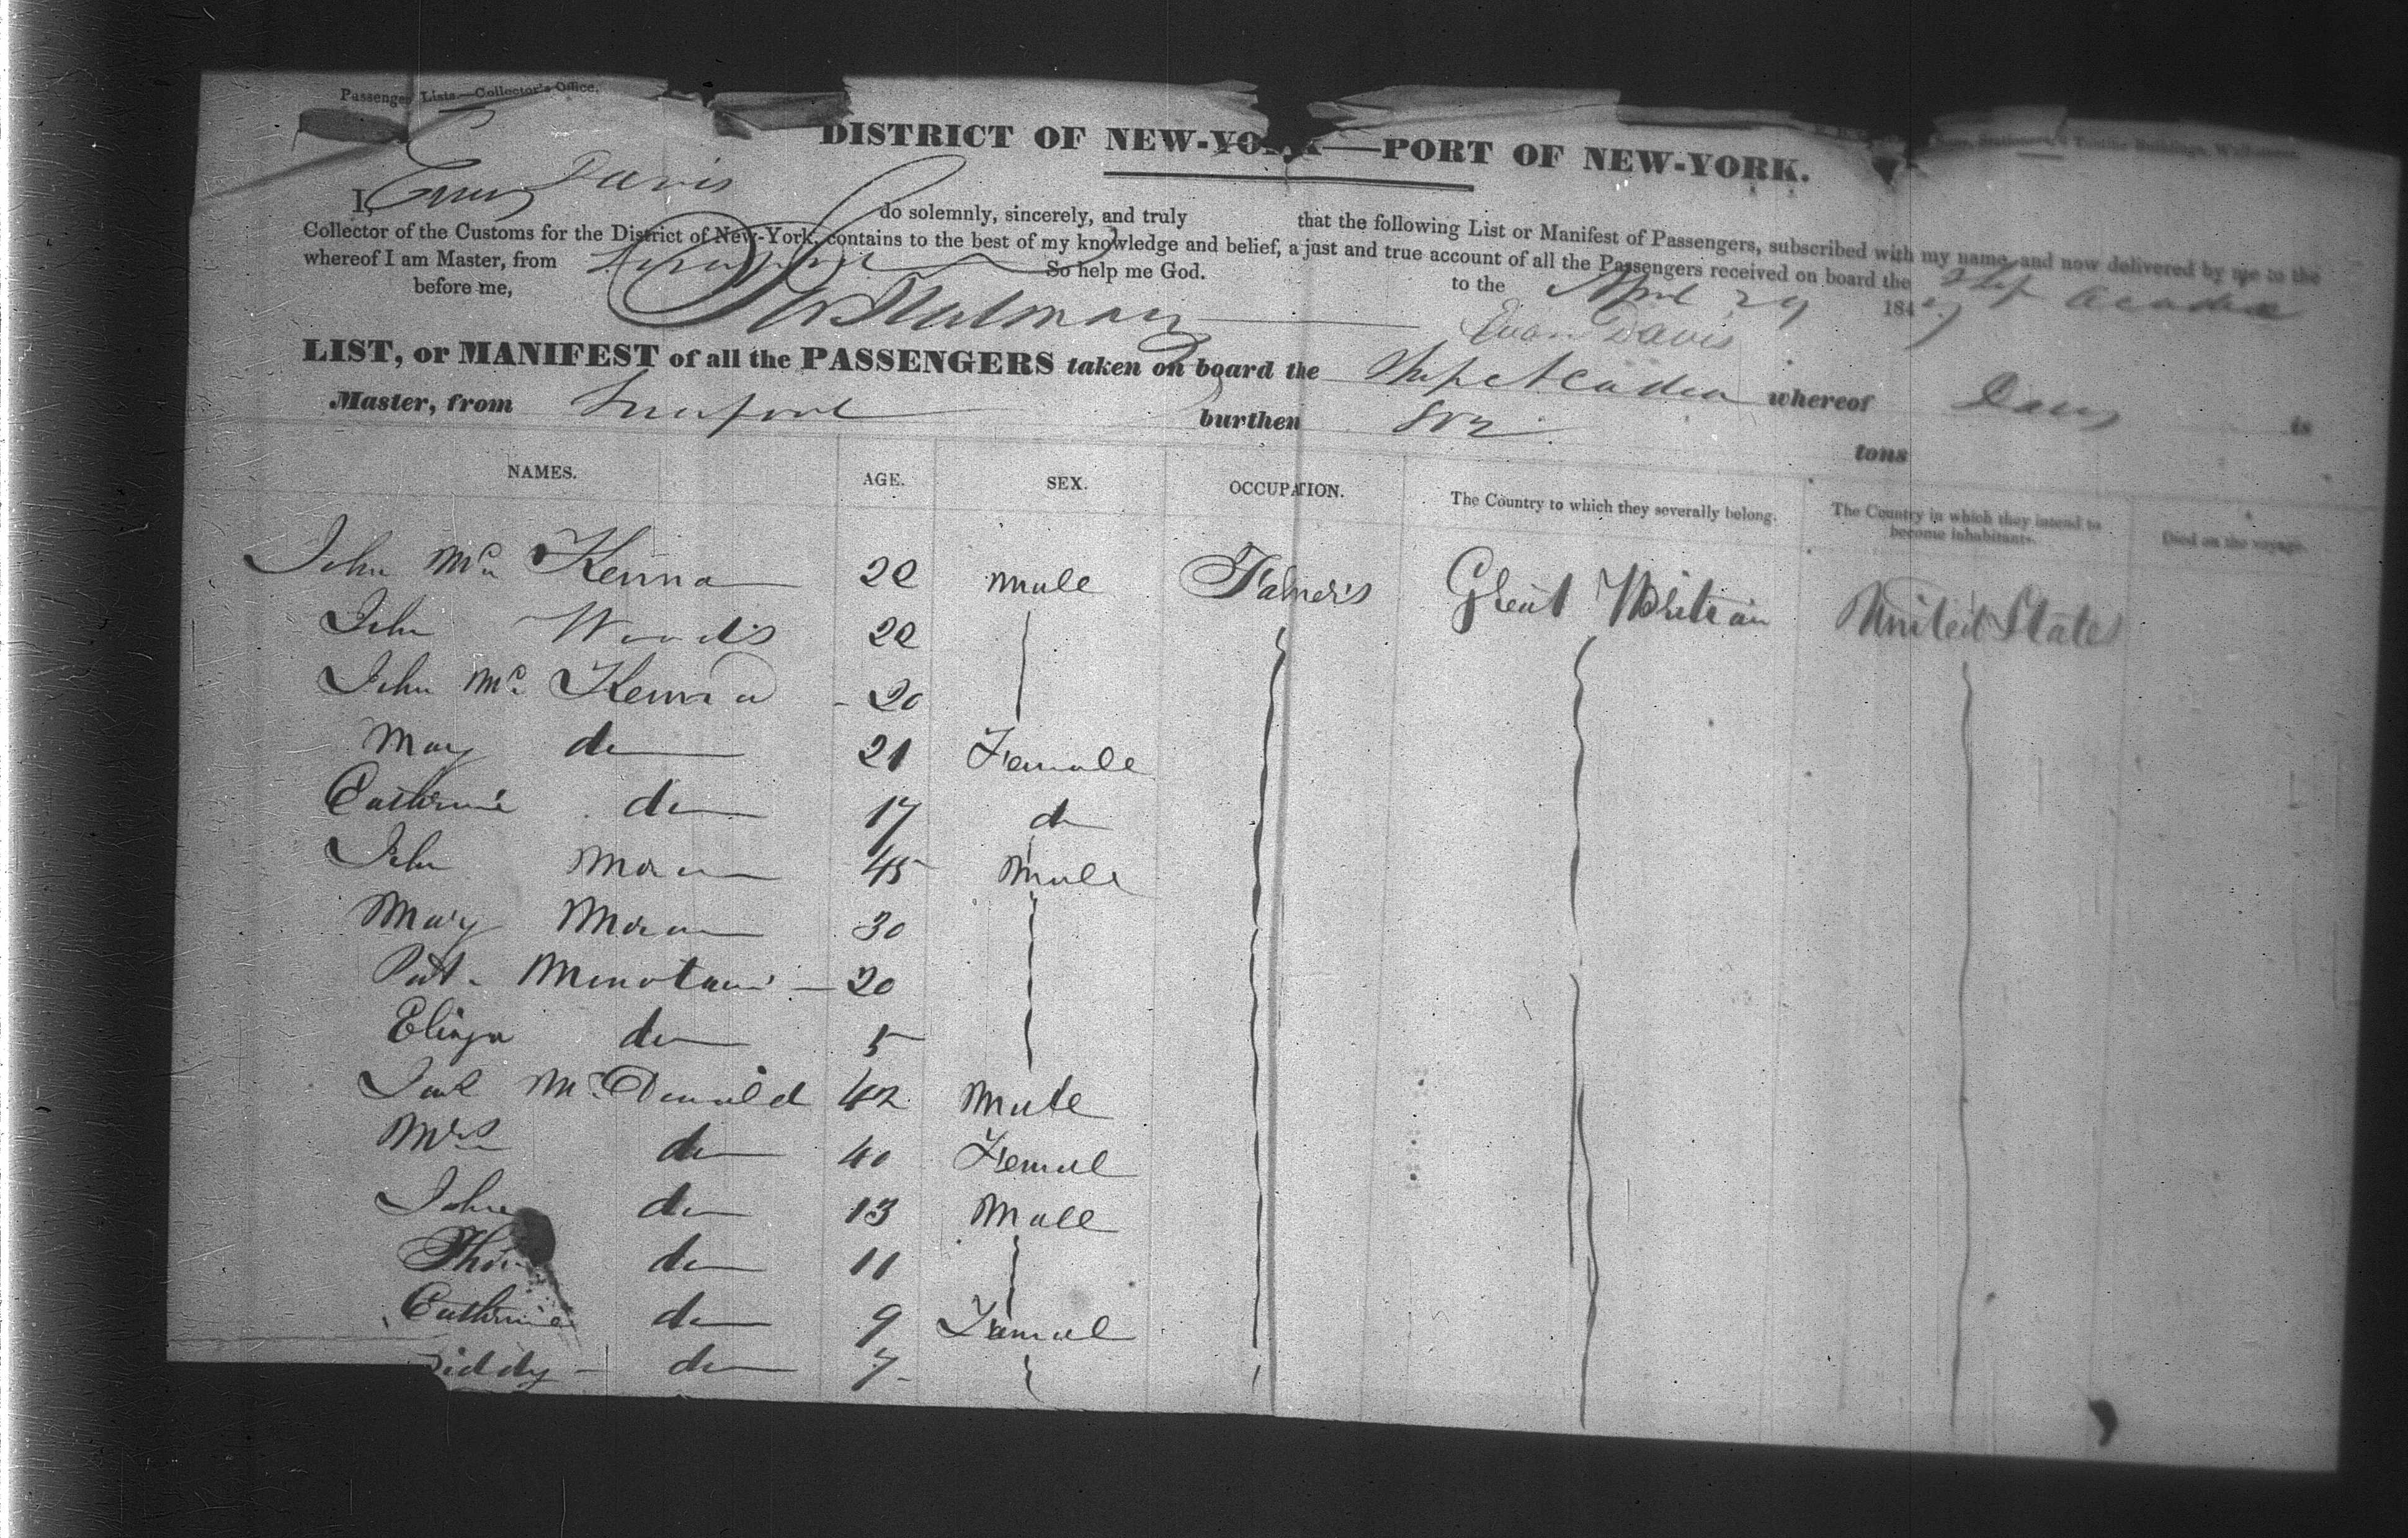 Passenger Lists.—Collector's Office.
DISTRICT OF NEW-YORK—PORT OF NEW-YORK.
I, Evan Davis do solemnly, sincerely, and truly that the following List or Manifest of Passengers, subscribed with my name, and now delivered by me to the
Collector of the Customs for the District of New-York, contains to the best of my knowledge and belief, a just and true account of all the Passengers received on board the Ship Acadia
whereof I am Master, from Liverpool So help me God. to the April 29 1847
before me, Evan Davis
LIST, or MANIFEST of all the PASSENGERS taken on board the Ship Acadia whereof Davis is
Master, from Liverpool burthen tons
NAMES. AGE. SEX. OCCUPATION. The Country to which they severally belong. The Country in which they intend to become inhabitants. Died on the voyage.
John Mc Kenna 22 Male Great Britain United States
John Woods 22
John Mc Kenna 20
Mary do 21 Female
Catherine do 17 do
John Moran 45 Male
Mary Moran 30
Pat. 20
Eliza do 5
McDonald 42 Male
Mrs do 40 Femal
John do 13 Male
Thos do 11
Catherine do 9 Femal
Biddy do 7